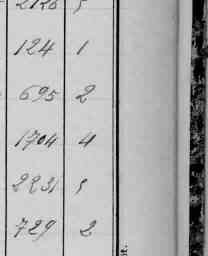 2126 5
124 1
695 2
1704 4
2231 5
729 2